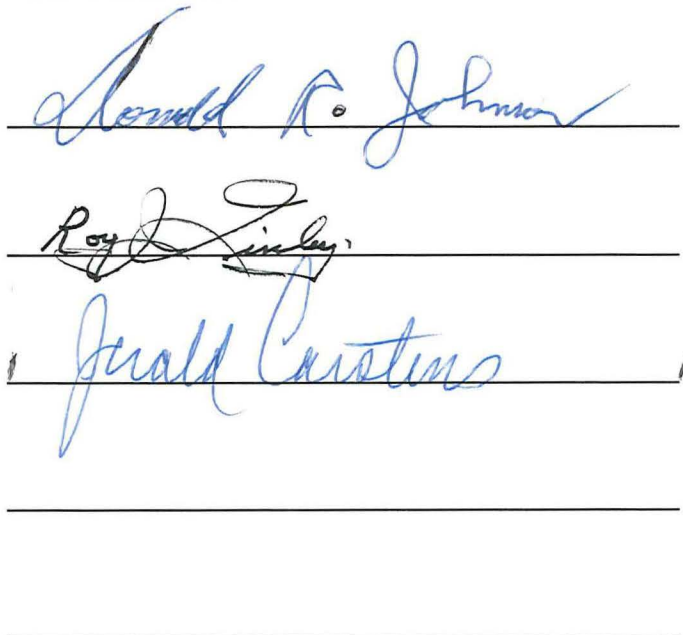 Donald R. Johnson
Roy J. Linley
Jerald Carstens